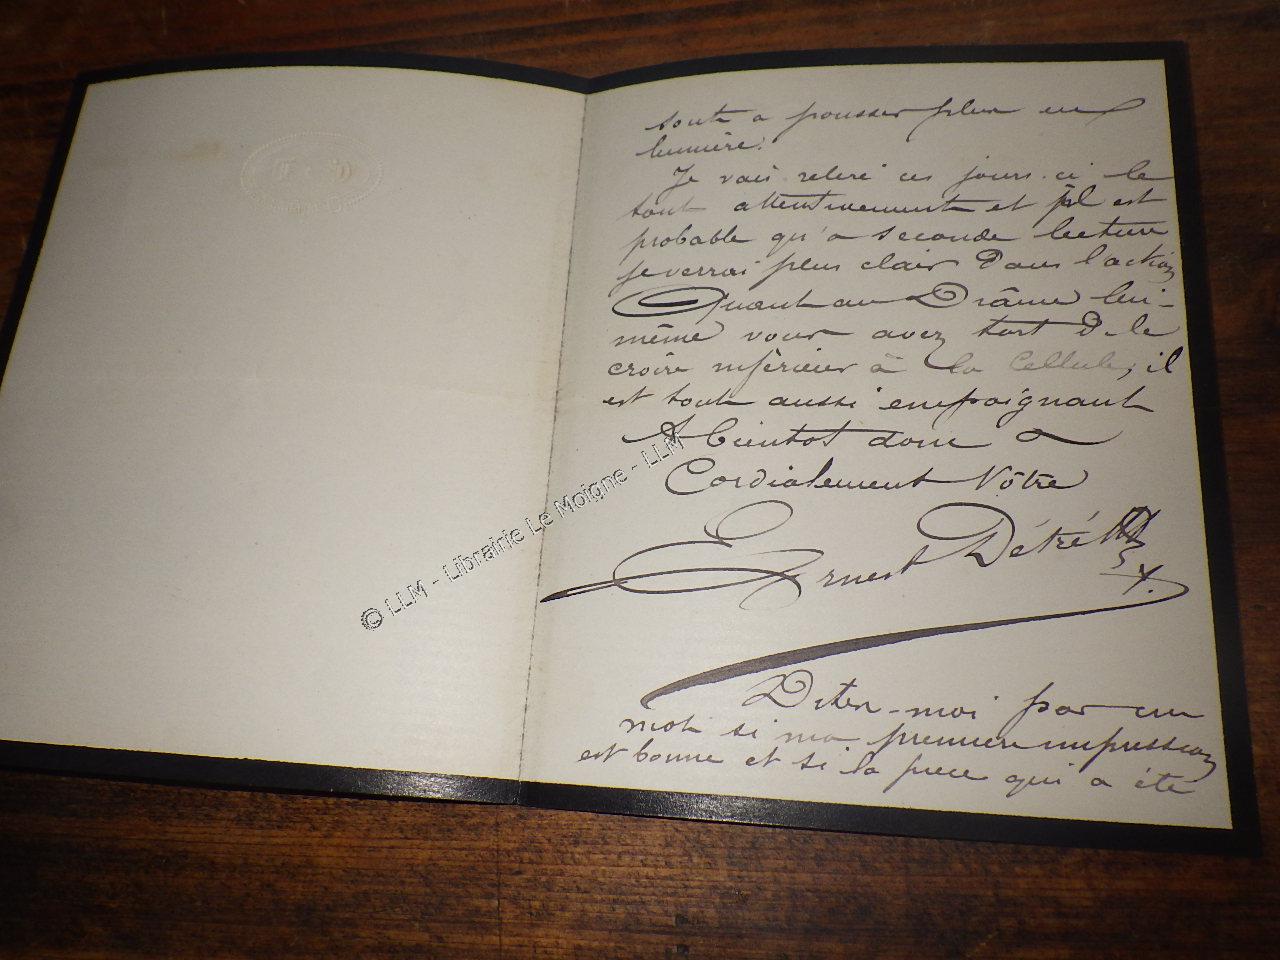 sont a pousser plus en
lumière.
Je vais relire ces jours-ci le
tout attentivement et il est
probable qu'a seconde lecture
je verrai plus clair dans l'action
Quant au Drâme lui-
même vous avez tort de le
croire inférieur à la Cellule, il
est tout aussi empoignant
A bientot donc
Cordialement Vôtre
Ernest Détré
Dites-moi par un
mot si ma premiere impression
est bonne et si la piece qui a été
© LLM - Librairie Le Moigne - LLM